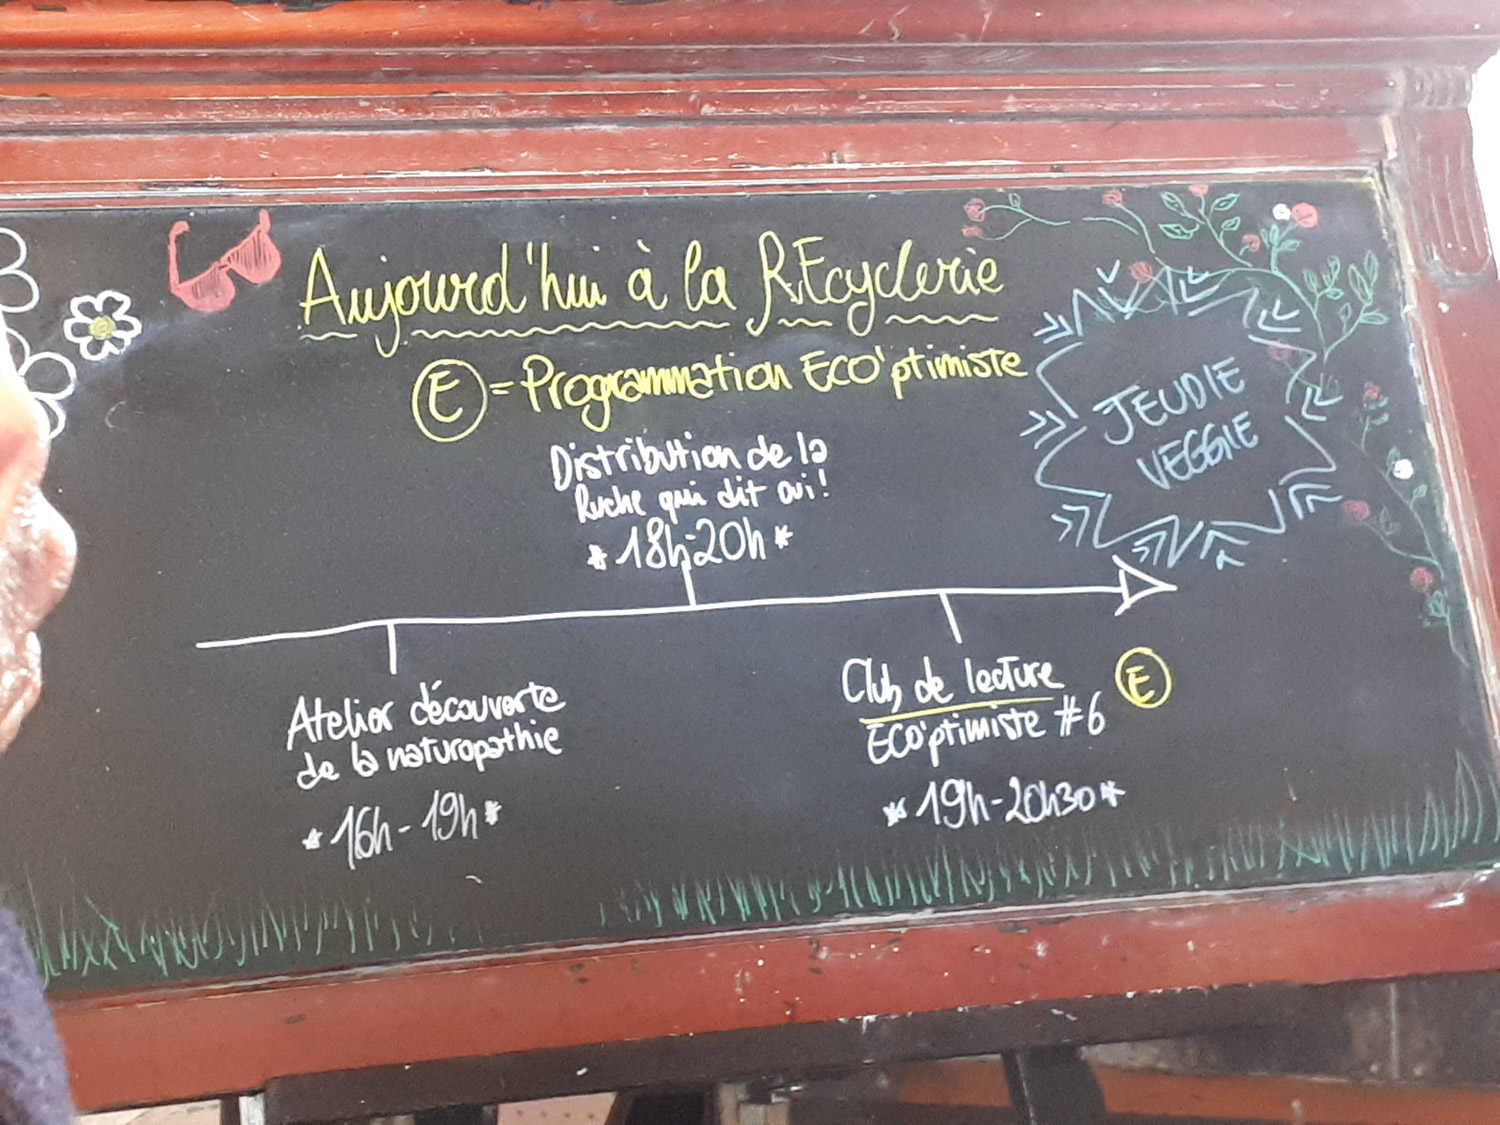 Aujourd'hui à la REcyclerie
E = Programmation ECO'ptimiste
JEUDIE
VEGGIE
Distribution de la
Ruche qui dit oui!
*18h-20h*
Atelier découverte
de la naturopathie
*16h-19h*
Club de lecture
ECO'ptimiste #6
E
*19h-20h30*